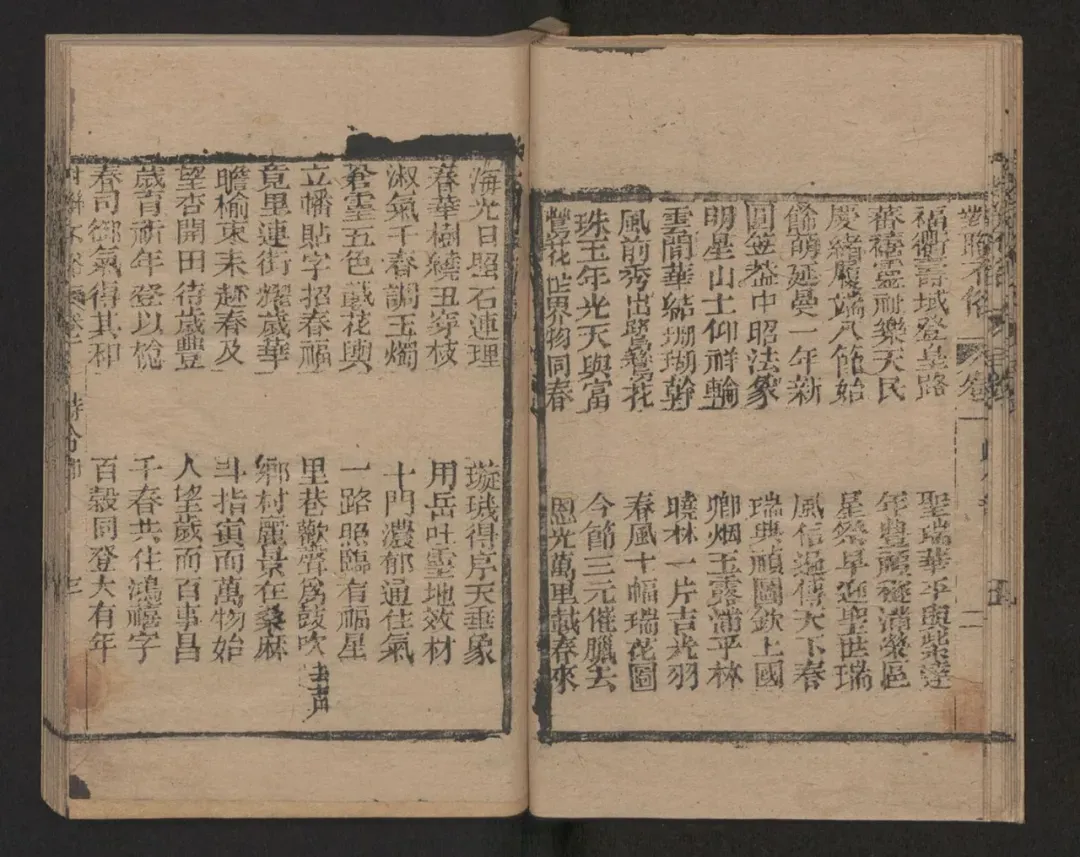 對聯不俗 卷一 二
福衢壽域登皇路 聖瑞華平與紫達
蕃禧靈祉樂天民 年豊
慶緒履端八節始 星祭早進聖世瑞
餘萌延曼一年新 風信遍傳天下春
圓笠益中昭法象 瑞興禎圖欽上國
明星山士仰祥輪 卿烟玉露滿平林
雲間華結珊瑚幹 曉林一片吉光羽
風前秀出鷺鷥花 春風十幅瑞花圖
珠玉年光天與富 今節三元催臘去
鶯花世界物同春 恩光萬里載春來
海光日照石連理 璇璣得序天垂象
春華樹繞丑穿枝 用岳吐靈地效材
淑氣千春調玉燭 十門濃郁通佳氣
蒼靈五色載花輿 一路照臨有福星
立幡貼字招春福 里巷歡聲為鼓吹 去声
竟里連街耀歲華 鄉村麗景在桑麻
瞻榆束耒趂春及 斗指寅而萬物始
望杏開田待歲豐 人望歲而百事昌
歲育祈年登以梲 千春共住鴻禧字
春司御氣得其和 百穀同登大有年
對聯不俗 卷一 時令 三